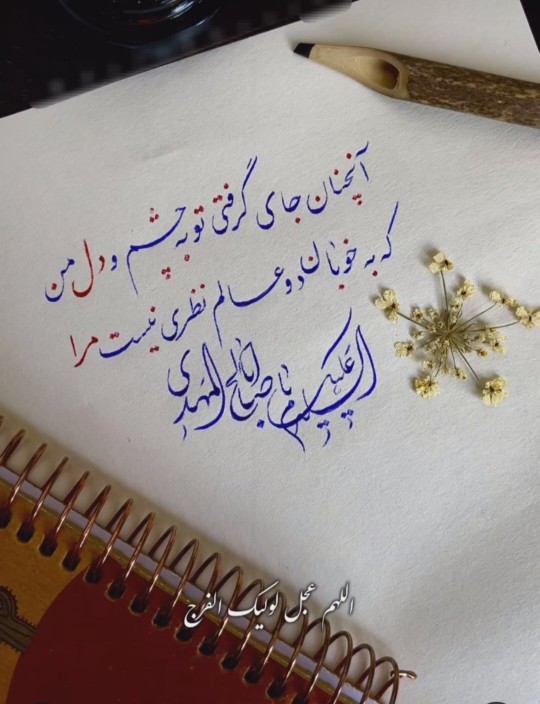 آنچنان جای گرفتی تو به چشم و دل من
که به خوبان دو عالم نظری نیست مرا
السلام علیک یا اباصالح المهدی
اللهم عجل لولیک الفرج